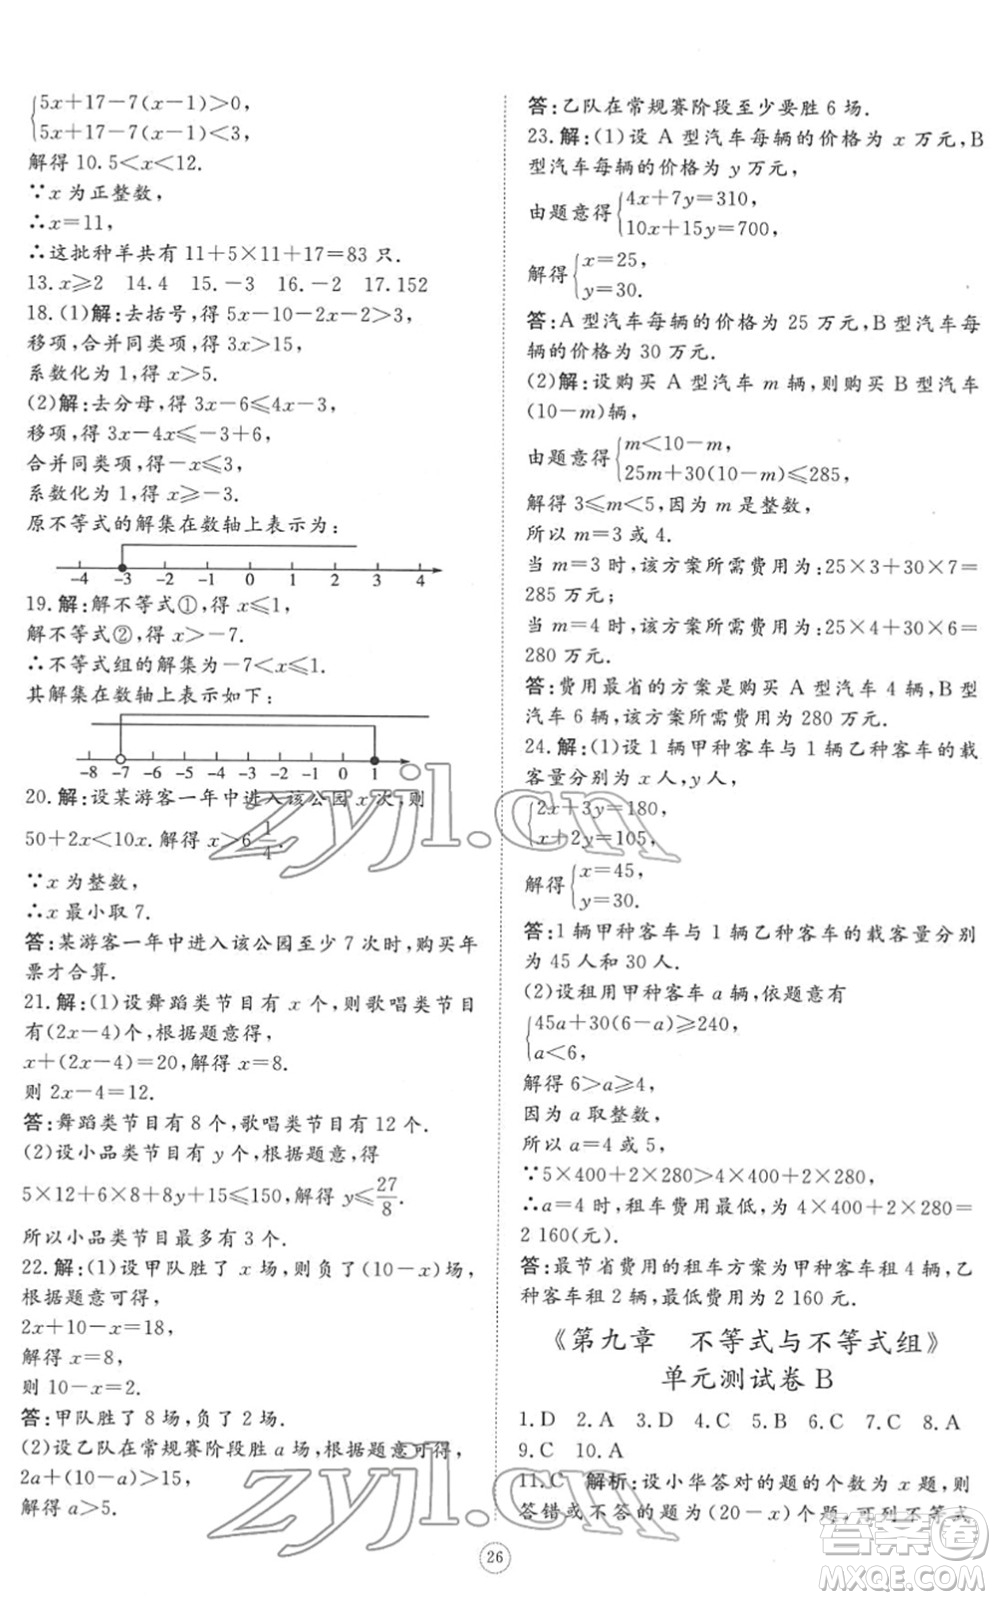 5x+17-7(x-1)>0,
5x+17-7(x-1)<3,
解得 10.5<x<12.
∵x 为正整数,
∴x=11,
∴这批种羊共有 11+5×11+17=83 只.
13.x≥2 14.4 15.-3 16.-2 17.152
18.(1)解:去括号,得 5x-10-2x-2>3,
移项,合并同类项,得 3x>15,
系数化为 1,得 x>5.
(2)解:去分母,得 3x-6≤4x-3,
移项,得 3x-4x≤-3+6,
合并同类项,得-x≤3,
系数化为 1,得 x≥-3.
原不等式的解集在数轴上表示为:
-4 -3 -2 -1 0 1 2 3 4
19.解:解不等式①,得 x≤1,
解不等式②,得 x>-7.
∴不等式组的解集为-7<x≤1.
其解集在数轴上表示如下:
-8 -7 -6 -5 -4 -3 -2 -1 0 1
20.解:设某游客一年中进入该公园 x 次,则
50+2x<10x. 解得 x>6 1/4.
∵x 为整数,
∴x 最小取 7.
答:某游客一年中进入该公园至少 7 次时,购买年
票才合算.
21.解:(1)设舞蹈类节目有 x 个,则歌唱类节目
有(2x-4)个,根据题意得,
x+(2x-4)=20,解得 x=8.
则 2x-4=12.
答:舞蹈类节目有 8 个,歌唱类节目有 12 个.
(2)设小品类节目有 y 个,根据题意,得
5×12+6×8+8y+15≤150,解得 y≤27/8.
所以小品类节目最多有 3 个.
22.解:(1)设甲队胜了 x 场,则负了(10-x)场,
根据题意可得,
2x+10-x=18,
解得 x=8,
则 10-x=2.
答:甲队胜了 8 场,负了 2 场.
(2)设乙队在常规赛阶段胜 a 场,根据题意可得,
2a+(10-a)>15,
解得 a>5.
答:乙队在常规赛阶段至少要胜 6 场.
23.解:(1)设 A 型汽车每辆的价格为 x 万元,B
型汽车每辆的价格为 y 万元,
由题意得{4x+7y=310,
10x+15y=700,
解得{x=25,
y=30.
答:A 型汽车每辆的价格为 25 万元,B 型汽车每
辆的价格为 30 万元.
(2)解:设购买 A 型汽车 m 辆,则购买 B 型汽车
(10-m)辆,
由题意得{m<10-m,
25m+30(10-m)≤285,
解得 3≤m<5,因为 m 是整数,
所以 m=3 或 4.
当 m=3 时,该方案所需费用为:25×3+30×7=
285 万元;
当 m=4 时,该方案所需费用为:25×4+30×6=
280 万元.
答:费用最省的方案是购买 A 型汽车 4 辆,B 型
汽车 6 辆,该方案所需费用为 280 万元.
24.解:(1)设 1 辆甲种客车与 1 辆乙种客车的载
客量分别为 x 人,y 人,
2x+3y=180,
x+2y=105,
解得{x=45,
y=30.
答:1 辆甲种客车与 1 辆乙种客车的载客量分别
为 45 人和 30 人.
(2)设租用甲种客车 a 辆,依题意有
45a+30(6-a)≥240,
a<6,
解得 6>a≥4,
因为 a 取整数,
所以 a=4 或 5,
∵5×400+2×280>4×400+2×280,
∴a=4 时,租车费用最低,为 4×400+2×280=
2 160(元).
答:最节省费用的租车方案为甲种客车租 4 辆,乙
种客车租 2 辆,最低费用为 2 160 元.
《第九章 不等式与不等式组》
单元测试卷 B
1.D 2.A 3.D 4.C 5.B 6.C 7.C 8.A
9.C 10.A
11.C 解析:设小华答对的题的个数为 x 题,则
答错或不答的题为(20-x)个题,可列不等式
26
zyjl.cn
zyjl.cn
答案圈
MXQE.COM